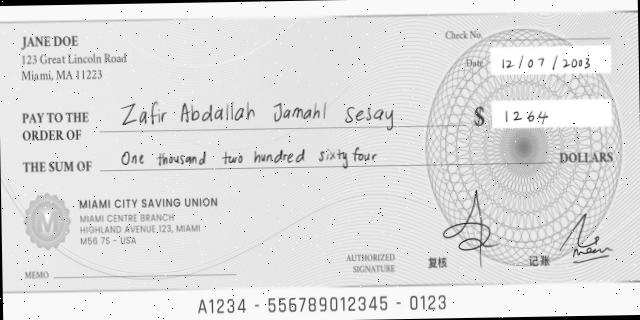 JANE DOE
123 Great Lincoln Road
Miami, MA 11223
Check No.
Date 12/07/2003
PAY TO THE
ORDER OF Zafir Abdallah Jamahl Sesay $ 1264
THE SUM OF One thousand two hundred sixty four DOLLARS
M MIAMI CITY SAVING UNION
MIAMI CENTRE BRANCH
HIGHLAND AVENUE,123, MIAMI
M56 7S - USA
AUTHORIZED
SIGNATURE 复核 记账
MEMO
A1234 - 556789012345 - 0123